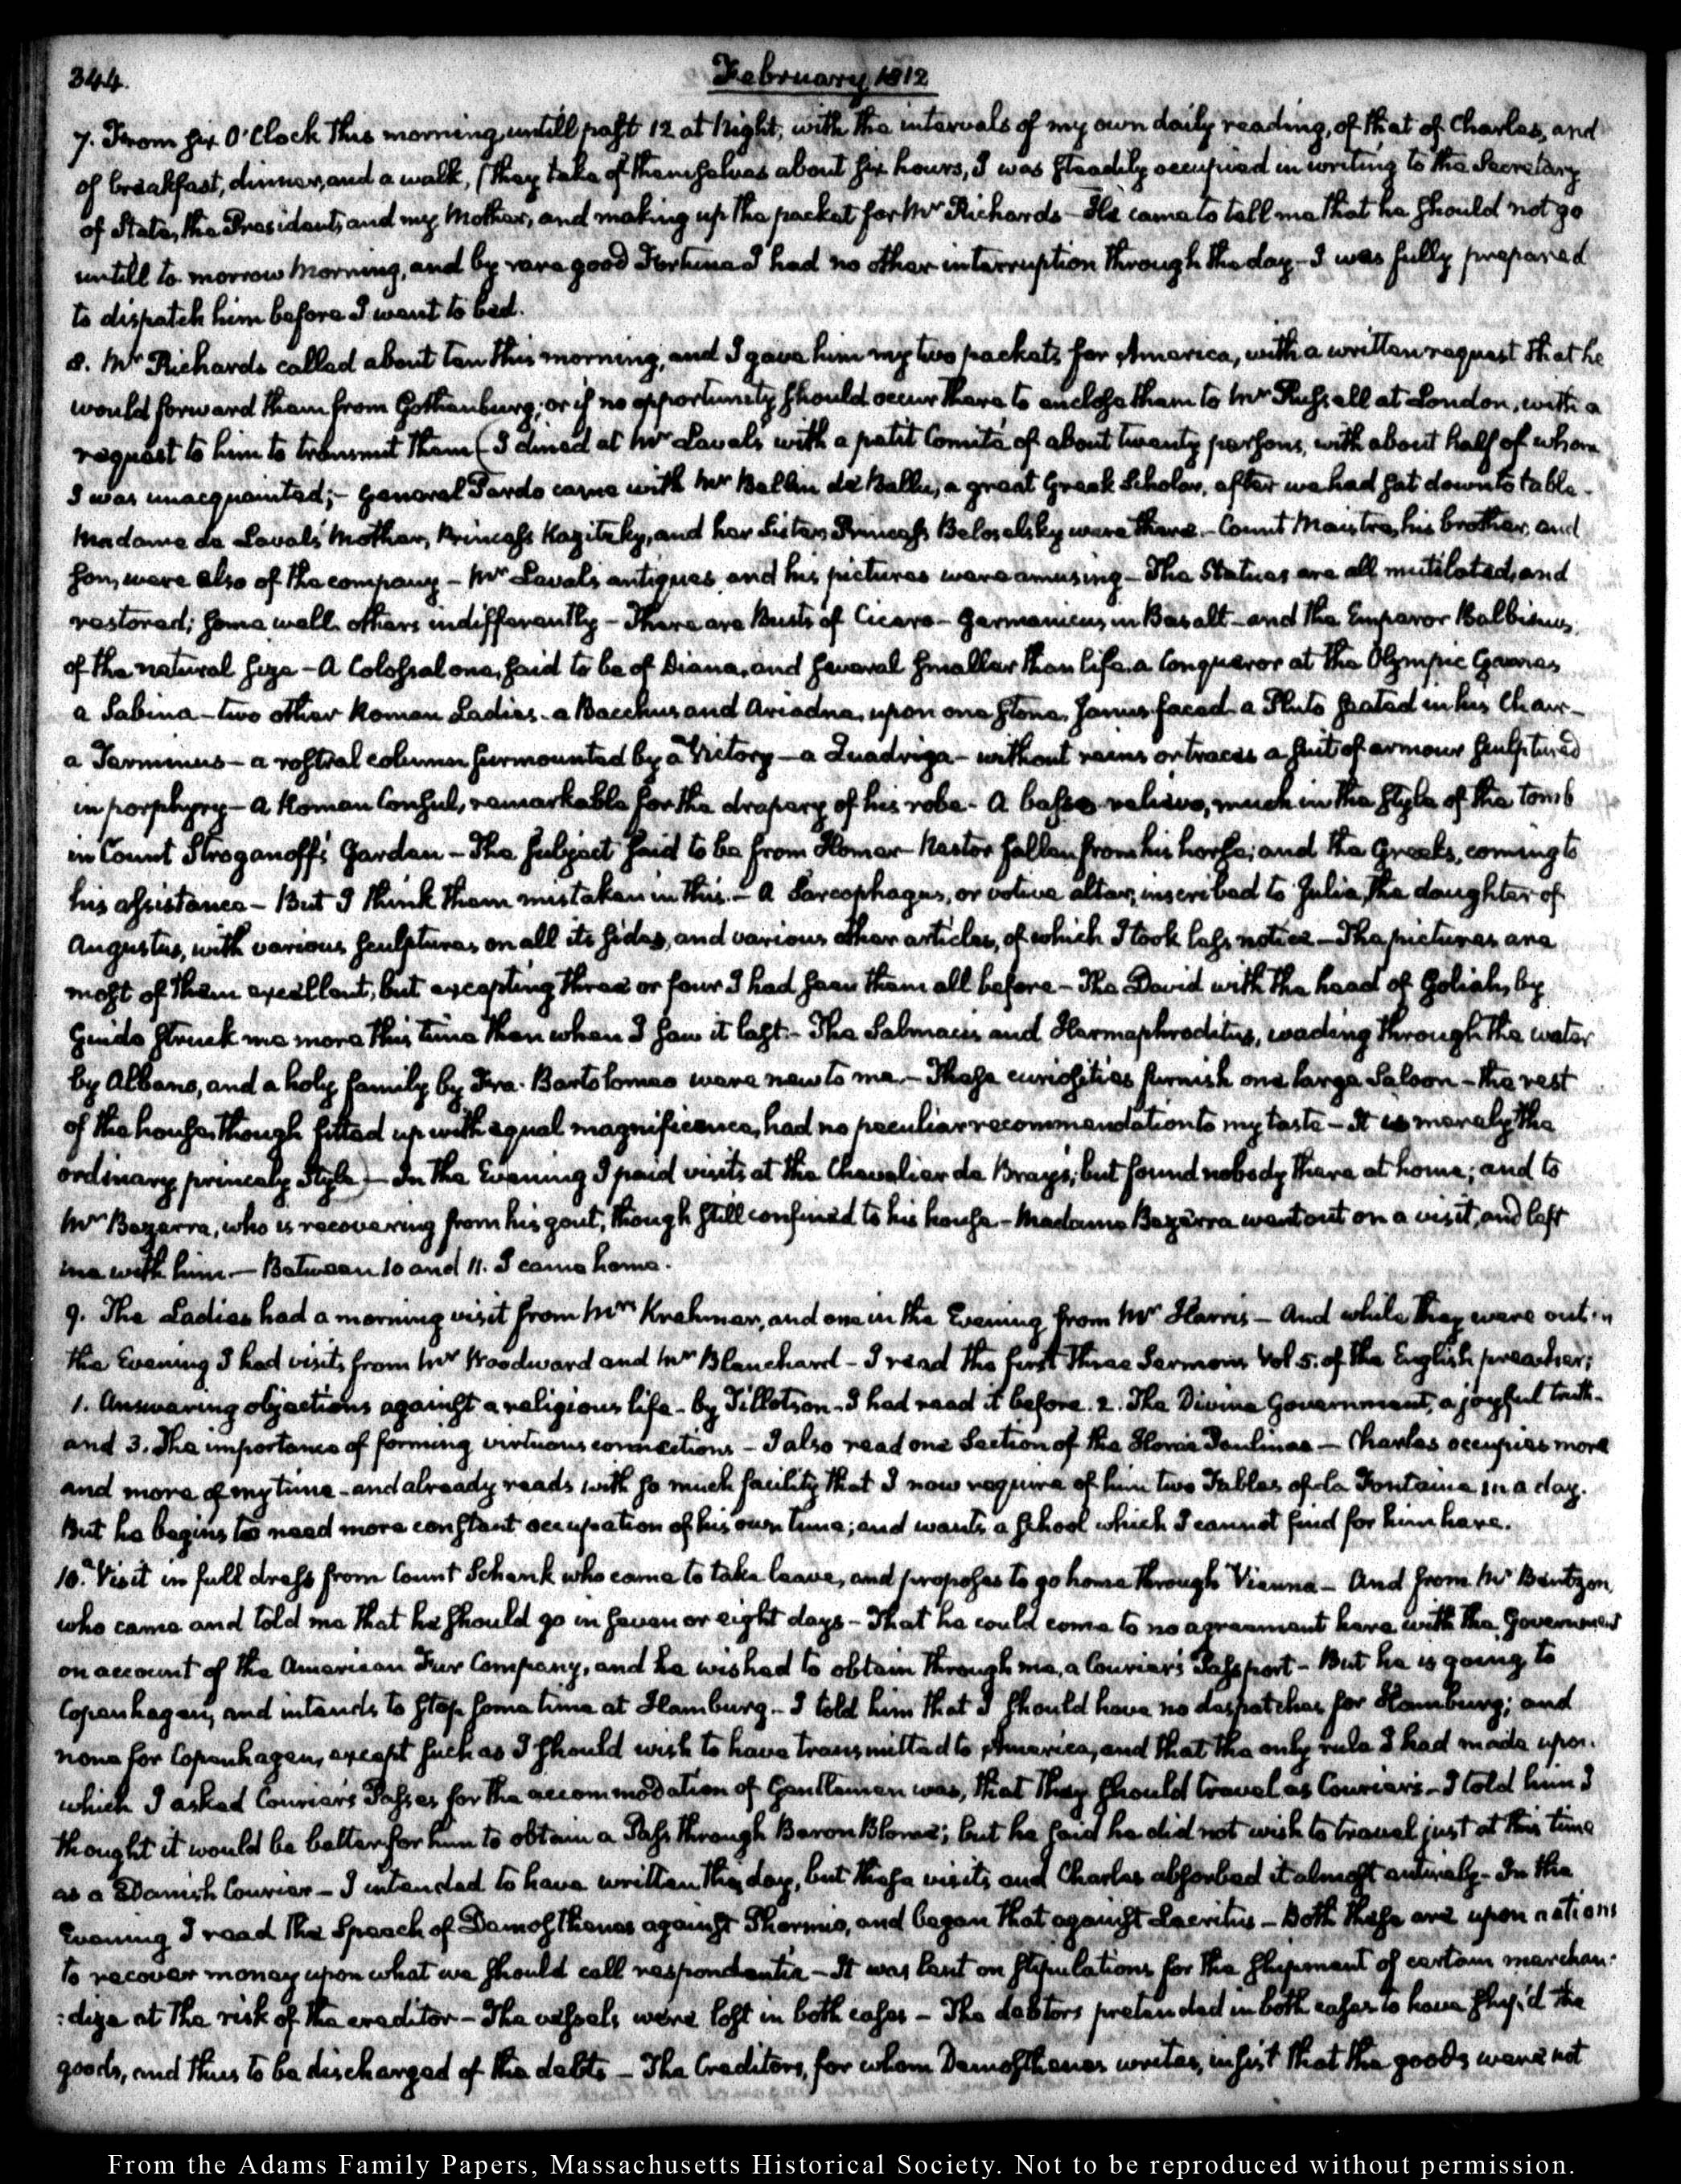 344.
February 1812
7. From six O'Clock this morning, untill past 12 at Night, with the intervals of my own daily reading, of that of Charles, and
of breakfast, dinner, and a walk, (they take of themselves about six hours, I was steadily occupied in writing to the Secretary
of State, the President, and my Mother, and making up the packet for Mr Richards — He came to tell me that he should not go
untill to-morrow Morning, and by rare good Fortune I had no other interruption through the day — I was fully prepared
to dispatch him before I went to bed.
8. Mr Richards called about ten this morning, and I gave him my two packets for America, with a written request that he
would forward them from Gothenburg; or if no opportunity should occur there to enclose them to Mr Russell at London, with a
request to him to transmit them (I dined at Mr Laval's with a petit Comité of about twenty persons, with about half of whom
I was unacquainted; — General Pardo came with Mr Ballin de Ballu, a great Greek Scholar, after we had sat down to table —
Madame de Laval's Mother, Princess Kozitzky, and her Sister Princess Beloselsky were there. — Count Maistre, his brother, and
son, were also of the company — Mr Laval's antiques, and his pictures were amusing — The Statues are all mutilated, and
restored; some well, others indifferently — There are Busts of Cicero — Germanicus, in Basalt — and the Emperor Balbinus,
of the natural size — A Colossal one, said to be of Diana, and several smaller than life. a Conqueror at the Olympic Games
a Sabina — two other Roman Ladies. a Bacchus and Ariadne, upon one stone, Janus faced. a Pluto seated in his Chair —
a Terminus — a rostral column surmounted by a Victory — a Quadriga — without reins or traces a suit of armour sculptured
in porphyry — A Roman Consul, remarkable for the drapery of his robe — A basso relievo, much in the style of the tomb
in Count Stroganoff's Garden — The subject said to be from Homer — Nestor fallen from his horse; and the Greeks, coming to
his assistance — But I think them mistaken in this. — A Sarcophagus, or votive altar, inscribed to Julia, the daughter of
Augustus, with various sculptures on all its sides, and various other articles, of which I took less notice — The pictures are
most of them excellent, but excepting three or four I had seen them all before — The David with the head of Goliah, by
Guido struck me more this time than when I saw it last — The Salmacis and Hermaphroditus, wading through the water
by Albano, and a holy family by Fra. Bartolomeo were new to me. — These curiosities furnish one large Saloon — the rest
of the house, though fitted up with equal magnificence, had no peculiar recommendation to my taste — It is merely the
ordinary princely Style) — In the Evening I paid visits at the Chevalier de Bray's; but found nobody there at home; and to
Mr Bezerra, who is recovering from his gout, though still confined to his house — Madame Bezerra went out on a visit, and left
me with him. — Between 10 and 11. I came home.
9. The Ladies had a morning visit from Mrs Krehmer, and one in the Evening from Mr Harris — And while they were out in
the Evening I had visits from Mr Woodward and Mr Blanchard — I read the first three Sermons Vol. 5. of the English preacher;
1. Answering objections against a religious life — by Tillotson — I had read it before. 2. The Divine Government, a joyful truth —
and 3. The importance of forming virtuous connections — I also read one Section of the Horae Paulinae — Charles occupies more
and more of my time — and already reads with so much facility that I now require of him two Fables of la Fontaine in a day.
But he begins to need more constant occupation of his own time; and wants a School which I cannot find for him here.
10. Visit in full dress from Count Schenk who came to take leave, and proposes to go home through Vienna — And from Mr Bentzon,
who came and told me that he should go in seven or eight days — That he could come to no agreement here with the Government
on account of the American Fur Company, and he wished to obtain through me, a Courier's Passport — But he is going to
Copenhagen, and intends to stop some time at Hamburg — I told him that I should have no despatches for Hamburg; and
none for Copenhagen, except such as I should wish to have transmitted to America, and that the only rule I had made upon
which I asked Courier's Passes for the accommodation of Gentlemen was, that they should travel as Couriers — I told him I
thought it would be better for him to obtain a Pass through Baron Blome; but he said he did not wish to travel just at this time
as a Danish Courier — I intended to have written this day, but these visits and Charles absorbed it almost entirely — In the
Evening I read the Speech of Demosthenes against Phormio, and began that against Lacritus — Both these are upon actions
to recover money upon what we should call respondentia — It was lent on stipulations for the shipment of certain merchan:
:dize at the risk of the creditor — The vessels were lost in both cases — The debtors pretended in both cases to have ship'd the
goods, and thus to be discharged of the debts — The Creditors, for whom Demosthenes writes, insist that the goods were not
From the Adams Family Papers, Massachusetts Historical Society. Not to be reproduced without permission.